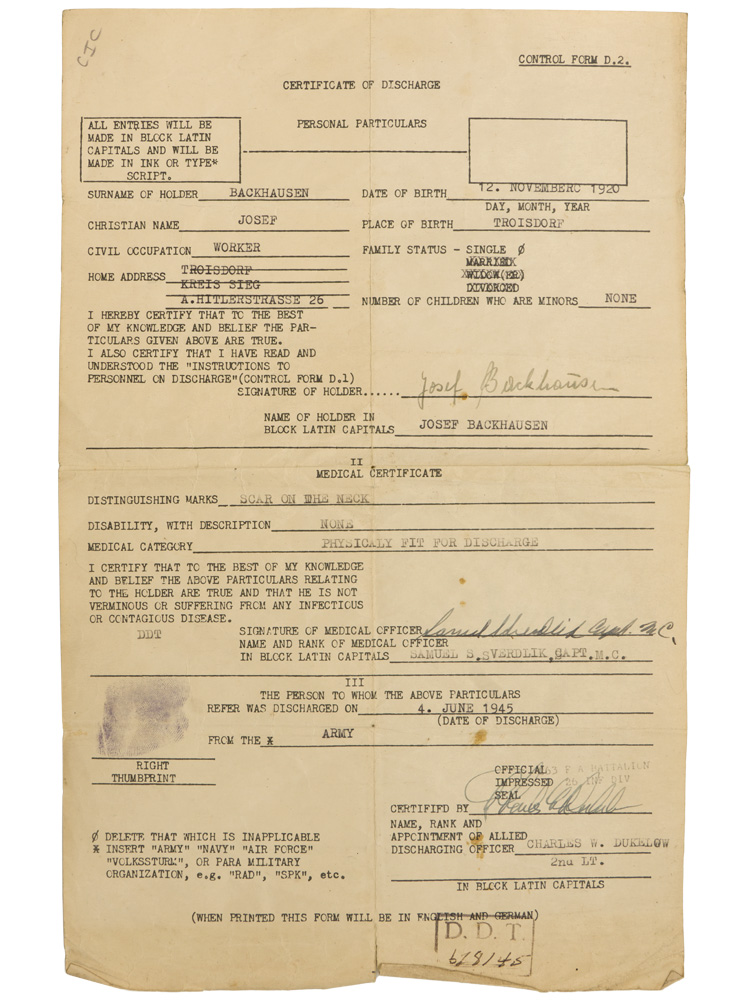 CIC
CONTROL FORM D.2.
CERTIFICATE OF DISCHARGE
ALL ENTRIES WILL BE
MADE IN BLOCK LATIN
CAPITALS AND WILL BE
MADE IN INK OR TYPE*
SCRIPT.
PERSONAL PARTICULARS
SURNAME OF HOLDER BACKHAUSEN DATE OF BIRTH 12. NOVEMBERC 1920
DAY, MONTH, YEAR
CHRISTIAN NAME JOSEF PLACE OF BIRTH TROISDORF
CIVIL OCCUPATION WORKER FAMILY STATUS - SINGLE Ø
MARRIED
WIDOW(ER)
DIVORCED
HOME ADDRESS TROISDORF
KREIS SIEG
A.HITLERSTRASSE 26 NUMBER OF CHILDREN WHO ARE MINORS NONE
I HEREBY CERTIFY THAT TO THE BEST
OF MY KNOWLEDGE AND BELIEF THE PAR-
TICULARS GIVEN ABOVE ARE TRUE.
I ALSO CERTIFY THAT I HAVE READ AND
UNDERSTOOD THE "INSTRUCTIONS TO
PERSONNEL ON DISCHARGE"(CONTROL FORM D.1)
SIGNATURE OF HOLDER...... Josef Backhausen
NAME OF HOLDER IN
BLOCK LATIN CAPITALS JOSEF BACKHAUSEN
II
MEDICAL CERTIFICATE
DISTINGUISHING MARKS SCAR ON THE NECK
DISABILITY, WITH DESCRIPTION NONE
MEDICAL CATEGORY PHYSICALY FIT FOR DISCHARGE
I CERTIFY THAT TO THE BEST OF MY KNOWLEDGE
AND BELIEF THE ABOVE PARTICULARS RELATING
TO THE HOLDER ARE TRUE AND THAT HE IS NOT
VERMINOUS OR SUFFERING FROM ANY INFECTIOUS
OR CONTAGIOUS DISEASE.
DDT SIGNATURE OF MEDICAL OFFICER Samuel S Sverdlik Capt. M.C.
NAME AND RANK OF MEDICAL OFFICER
IN BLOCK LATIN CAPITALS SAMUEL S.SVERDLIK,CAPT.M.C.
III
THE PERSON TO WHOM THE ABOVE PARTICULARS
REFER WAS DISCHARGED ON 4. JUNE 1945
(DATE OF DISCHARGE)
FROM THE * ARMY
RIGHT
THUMBPRINT
OFFICIAL 63 F A BATTALION
IMPRESSED INF DIV
SEAL
CERTIFIED BY
NAME, RANK AND
APPOINTMENT OF ALLIED
DISCHARGING OFFICER CHARLES W. DUKELOW
2nd LT.
IN BLOCK LATIN CAPITALS
Ø DELETE THAT WHICH IS INAPPLICABLE
* INSERT "ARMY" "NAVY" "AIR FORCE"
"VOLKSSTURM", OR PARA MILITARY
ORGANIZATION, e.g. "RAD", "SPK", etc.
(WHEN PRINTED THIS FORM WILL BE IN ENGLISH AND GERMAN)
D. D. T.